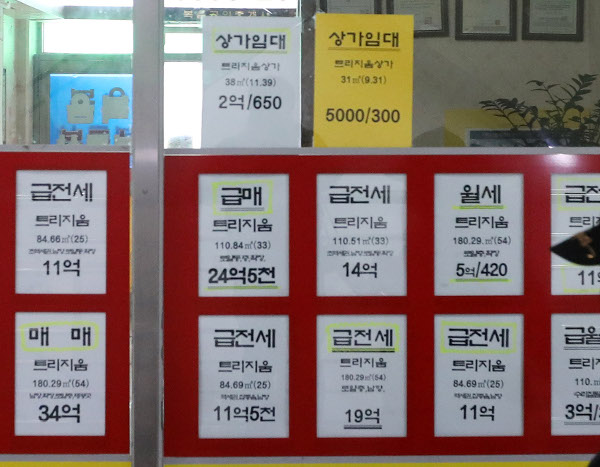 상가임대
트리지움상가
38㎡(11.39)
2억/650
상가임대
트리지움상가
31㎡(9.31)
5000/300
급전세
트리지움
84.66㎡(25)
11억
급매
트리지움
110.84㎡(33)
24억5천
급전세
트리지움
110.51㎡(33)
14억
월세
트리지움
180.29㎡(54)
5억/420
매매
트리지움
180.29㎡(54)
34억
급전세
트리지움
84.69㎡(25)
11억5천
급전세
트리지움
180.29㎡(54)
19억
급전세
트리지움
84.69㎡(25)
11억
급전
트리지
11억
급월
트리지
110.
3억/